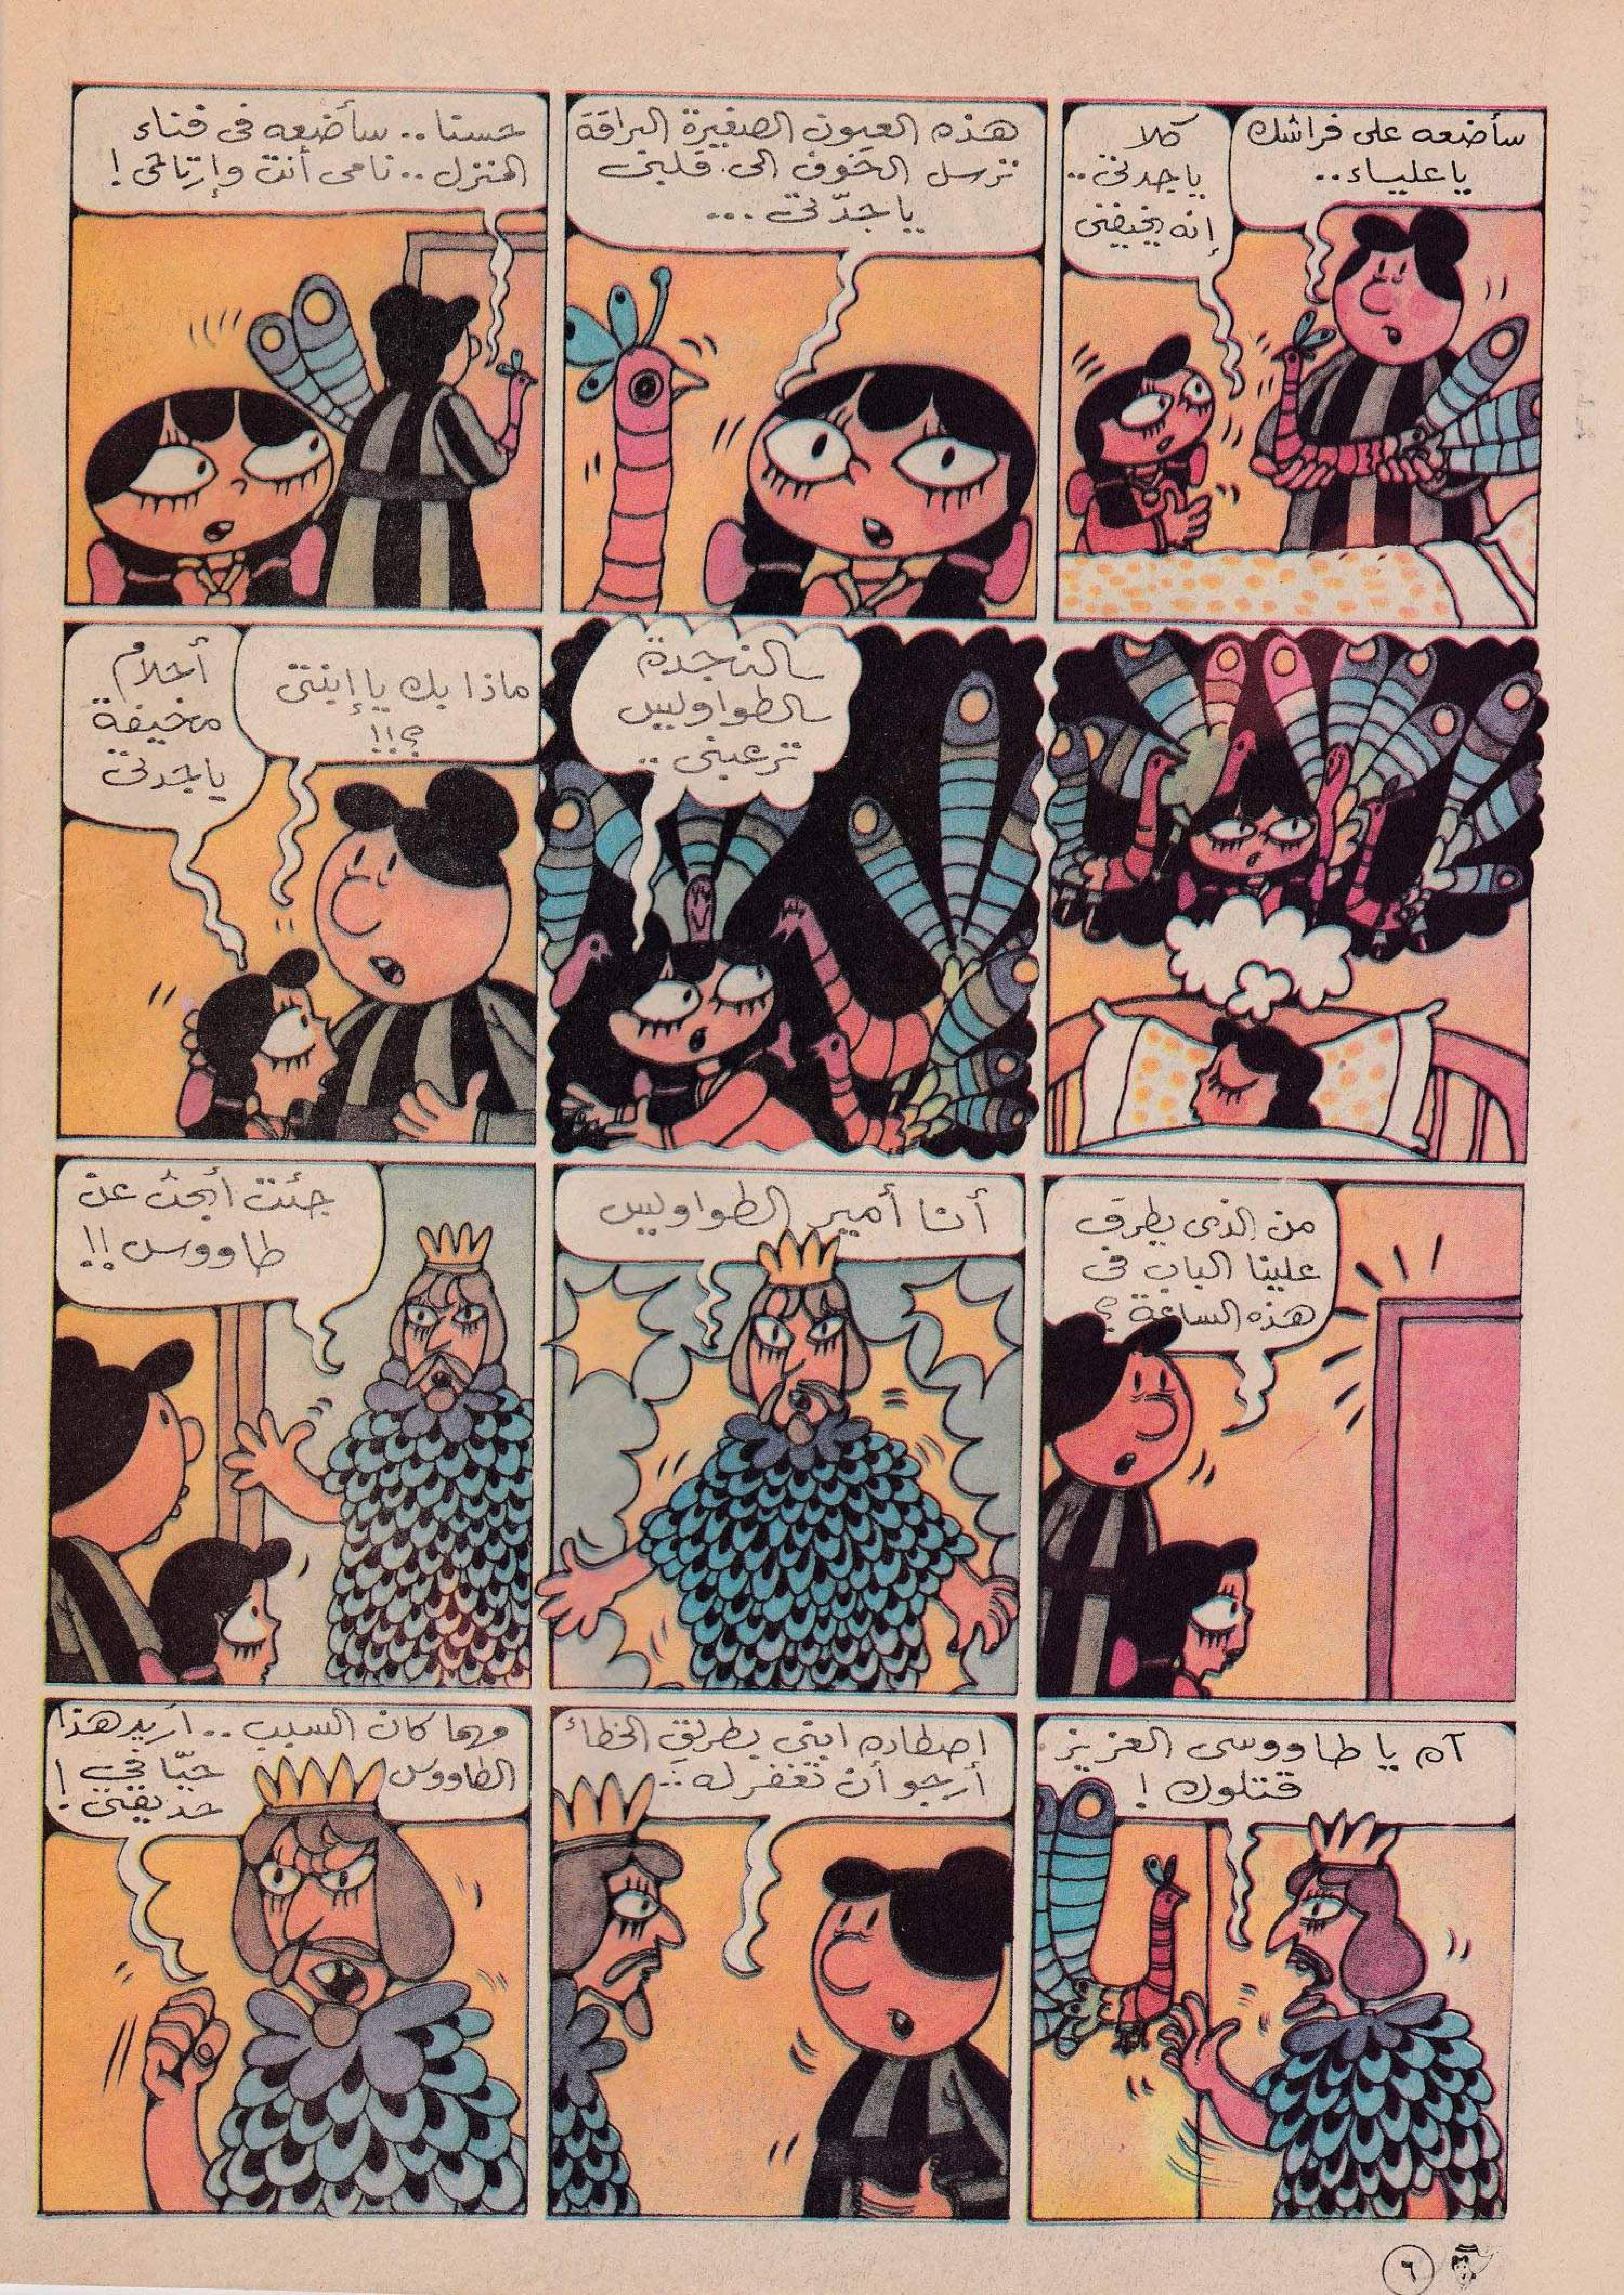 سأضعه على فراشك
يا علياء..
كلا
يا جدتى..
إنه يخيفنى
هذه العيون الصغيرة البراقة
ترسل الخوف الى قلبى
يا جدّتى...
حسنا.. سأضعه فى فناء
المنزل.. نامى أنت وإرتاحى!
النجدة
الطواويس
ترعبنى..
ماذا بك يا إبنتى
؟!!
أحلام
مخيفة
يا جدتى
من الذى يطرق
علينا الباب فى
هذه الساعة؟
أنا أمير الطواويس
جئت أبحث عن
طاووس!!
آه يا طاووسى العزيز
قتلوك!
اصطاده ابنى بطريق الخطأ
أرجو أن تغفر له..
مهما كان السبب.. أريد هذا
الطاووس حيّا فى
حديقتى!
٦